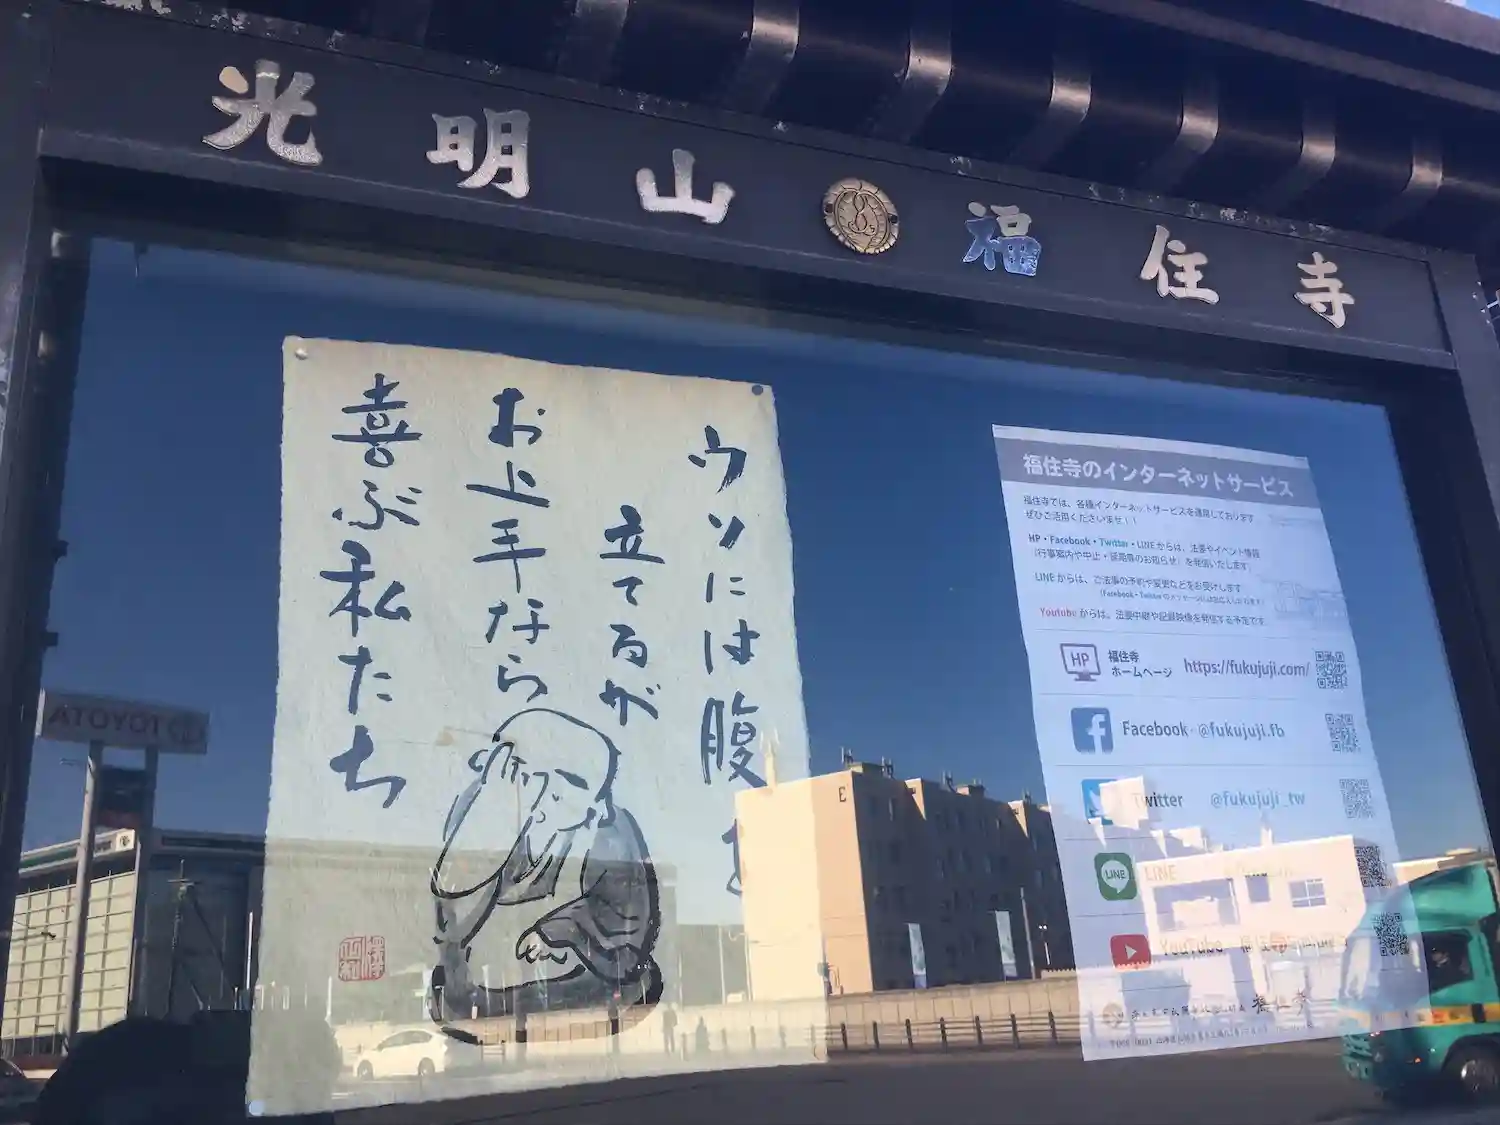 光明山 福住寺
ウソには腹を
立てるが
お上手なら
喜ぶ私たち
福住寺のインターネットサービス
福住寺では、各種インターネットサービスを運用しております
ぜひご活用くださいませ！！
HP・Facebook・Twitter・LINEからは、法要やイベント情報
（行事案内や中止・延期等のお知らせ）を発信いたします
LINEからは、ご法事の予約や変更などをお受けします
Youtubeからは、法要中継や記録映像を発信する予定です
HP
福住寺
ホームページ
https://fukujuji.com/
Facebook
@fukujuji.fb
Twitter
@fukujuji_tw
LINE
LINE
YouTube
福住寺
TOYOTA
E